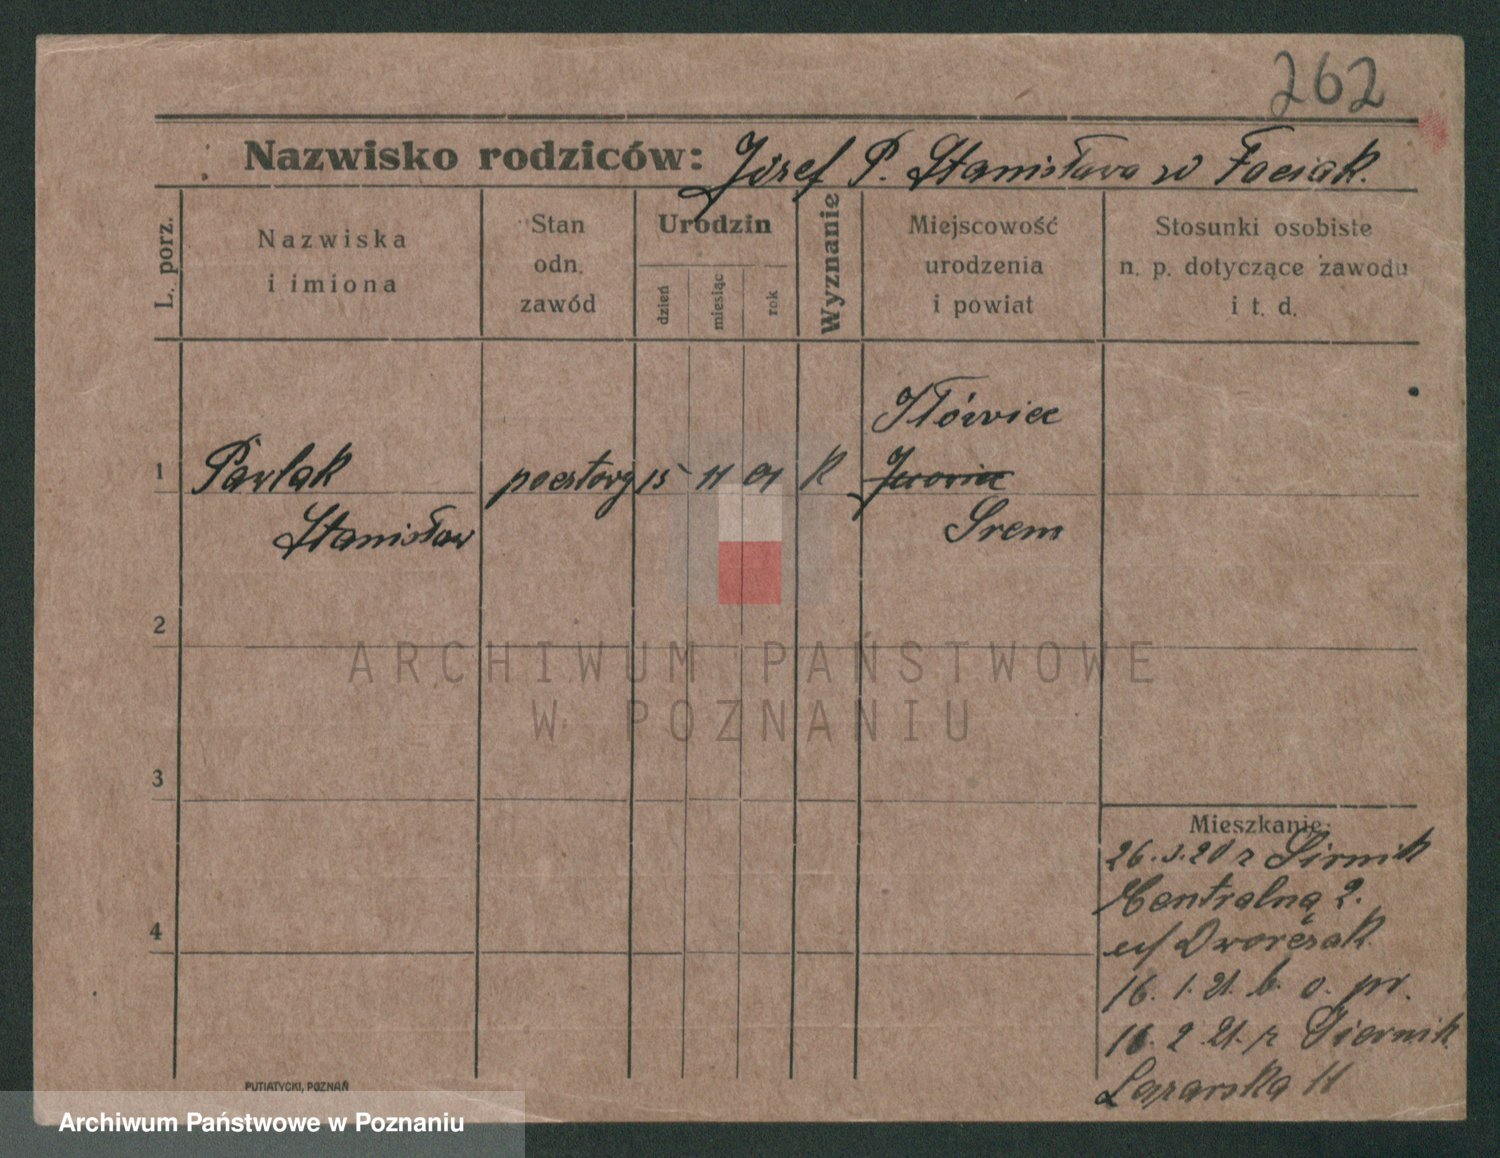 262
Nazwisko rodziców: Józef P. Stanisława w Faciak.
L. porz.
Nazwiska
i imiona
Stan
odn.
zawód
Urodzin
dzień
miesiąc
rok
Wyznanie
Miejscowość
urodzenia
i powiat
Stosunki osobiste
n. p. dotyczące zawodu
i t. d.
Iłówiec
1 Pavlak 15 11 01 K
Stanisław
Srem
2
ARCHIWUM PAŃSTWOWE
W POZNANIU
3
Mieszkanie:
26. 3. 20 z
Centralna 2.
Dworczak
4
16. 1. 21. b. o. pr.
16. 2. 21. z Siernik
Łazarska 11
PUTIATYCKI, POZNAŃ
Archiwum Państwowe w Poznaniu